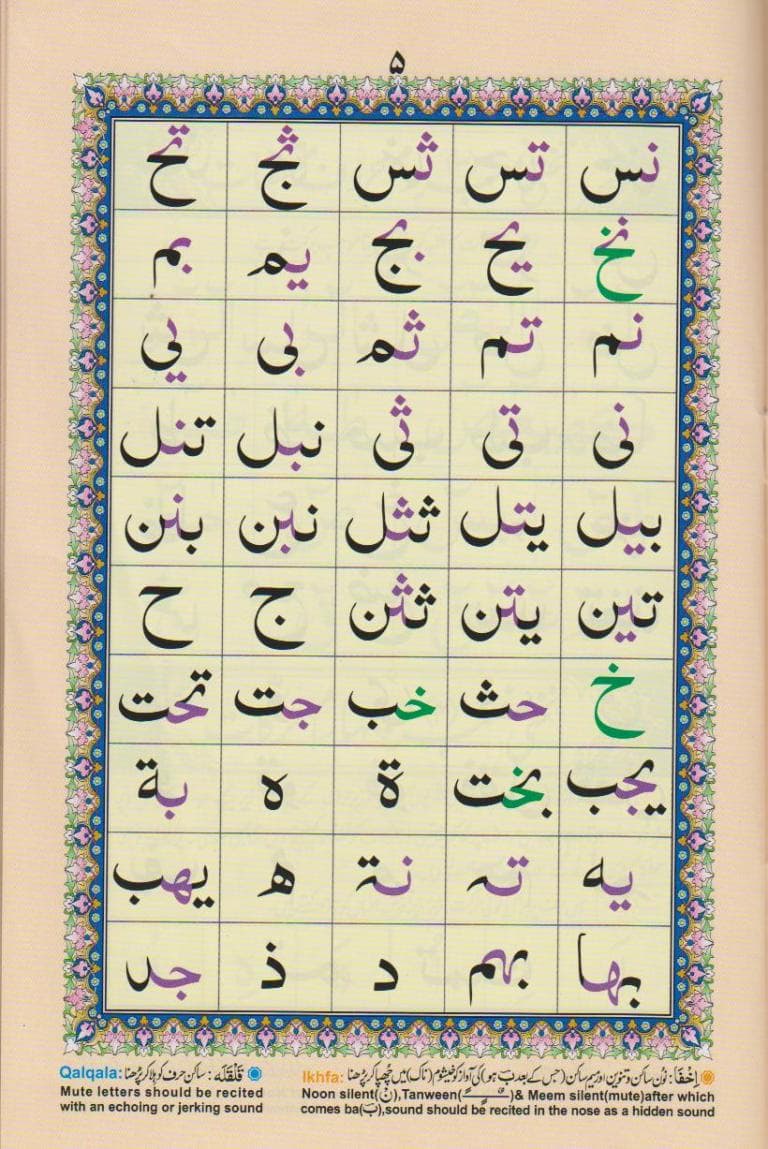 ۵
نس تس ثس ثج تح
نخ يح بج يم بم
نم تم ثم بى يى
نى تى ثى نبل تنل
بيل يتل ثثل نبن بنن
تين يتن ثثن ج ح
خ حث خب جت تحت
يجب بخت ة ه بة
يه تہ نة ھ يهب
بها بهم د ذ جد
اِخْفَا: نون ساکن و تنوین اور میم ساکن (جس کے بعد بَ ہو) کی آواز کو خیشوم (ناک) میں چھپا کر پڑھنا Ikhfa:
Noon silent(نْ),Tanween(ــًــٍــٌ)& Meem silent(mute)after which
comes ba(بَ),sound should be recited in the nose as a hidden sound
قَلْقَلَه: ساکن حرف کو ہلا کر پڑھنا Qalqala:
Mute letters should be recited
with an echoing or jerking sound